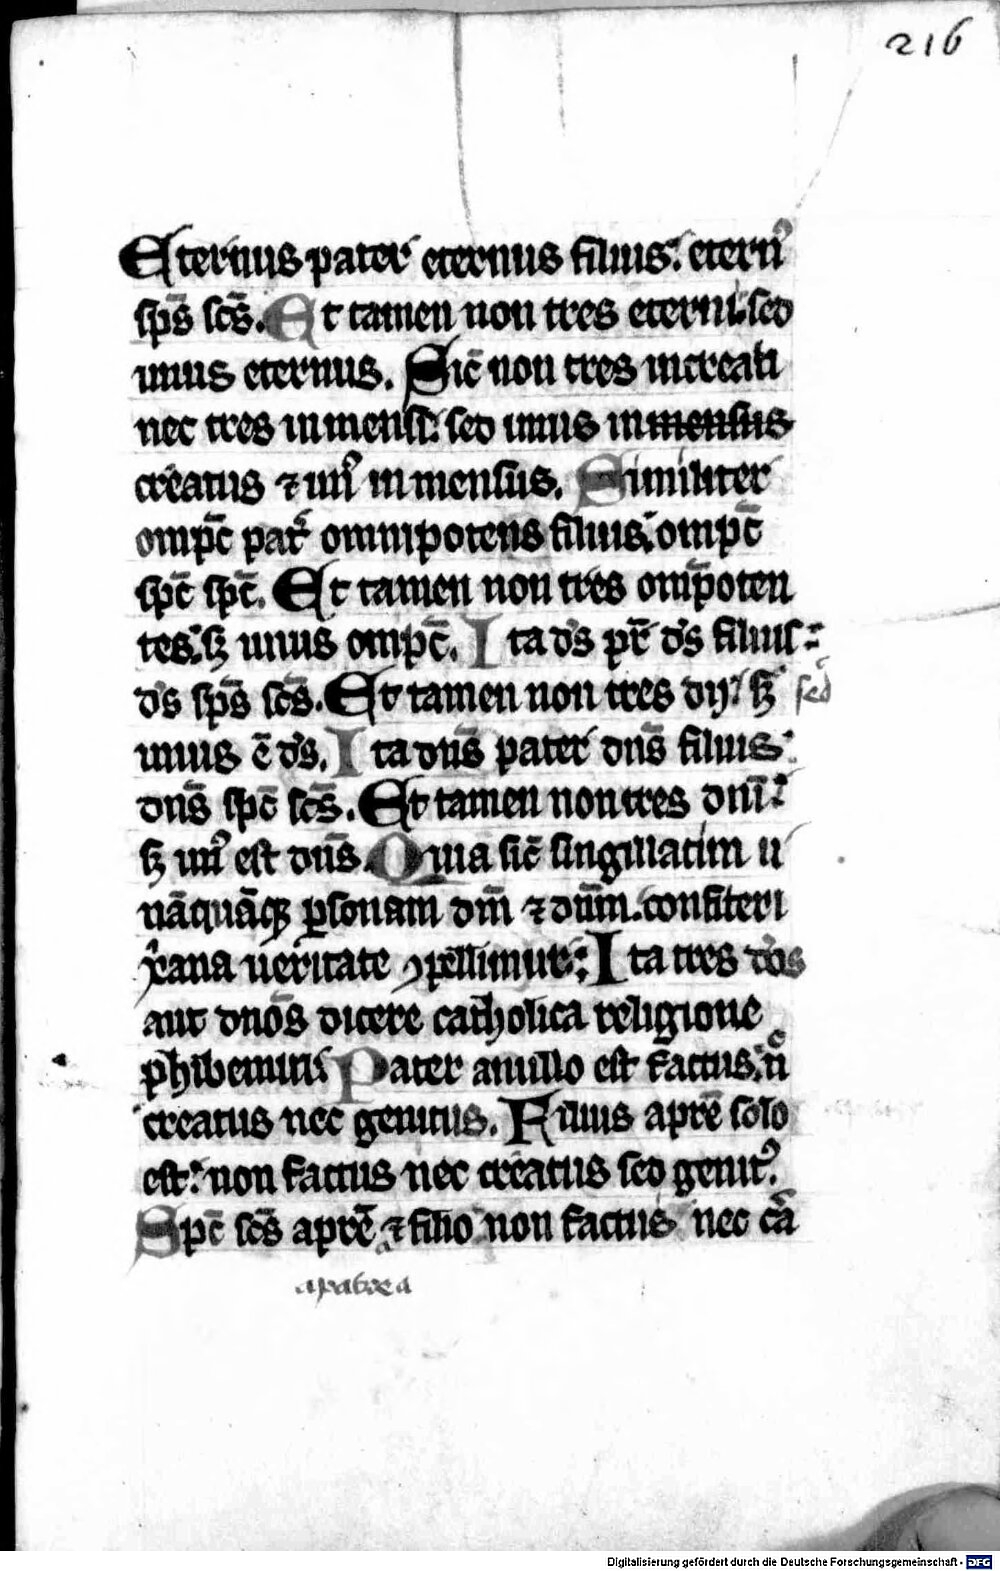 216
Eternus pater eternus filius. etern⁹
sp̄s sc̄s. Et tamen non tres eterni. sed
unus eternus. Sic̄ non tres increati
nec tres inmensi. sed unus inmensus
creatus ⁊ un⁹ inmensus. Similiter
omp̄c pat̄ omnipotens filius. omp̄c
sp̄c sp̄c. Et tamen non tres om̄poten
tes. sꝫ unus omp̄c. Ita d̄s pr̄ d̄s filius
d̄s sp̄s sc̄s. Et tamen non tres dij. sꝫ sed
unus ē d̄s. Ita dn̄s pater dn̄s filius.
dn̄s sp̄c sc̄s. Et tamen non tres dnī.
sꝫ un⁹ est dn̄s. Quia sic̄ singillatim u
nāquāqꝫ ꝑsonam dm̄ ⁊ dnm̄. confiteri
xͥana ueritate ꝯpellimur. Ita tres deos
aut dn̄os dicere catholica religione
ꝓhibemur. Pater anullo est factus. n̄
creatus nec genitus. Filius aprē solo
est. non factus nec creatus sed genit⁹.
Sp̄c sc̄s aprē ⁊ filio non factus nec c̄a
Digitalisierung gefördert durch die Deutsche Forschungsgemeinschaft - DFG